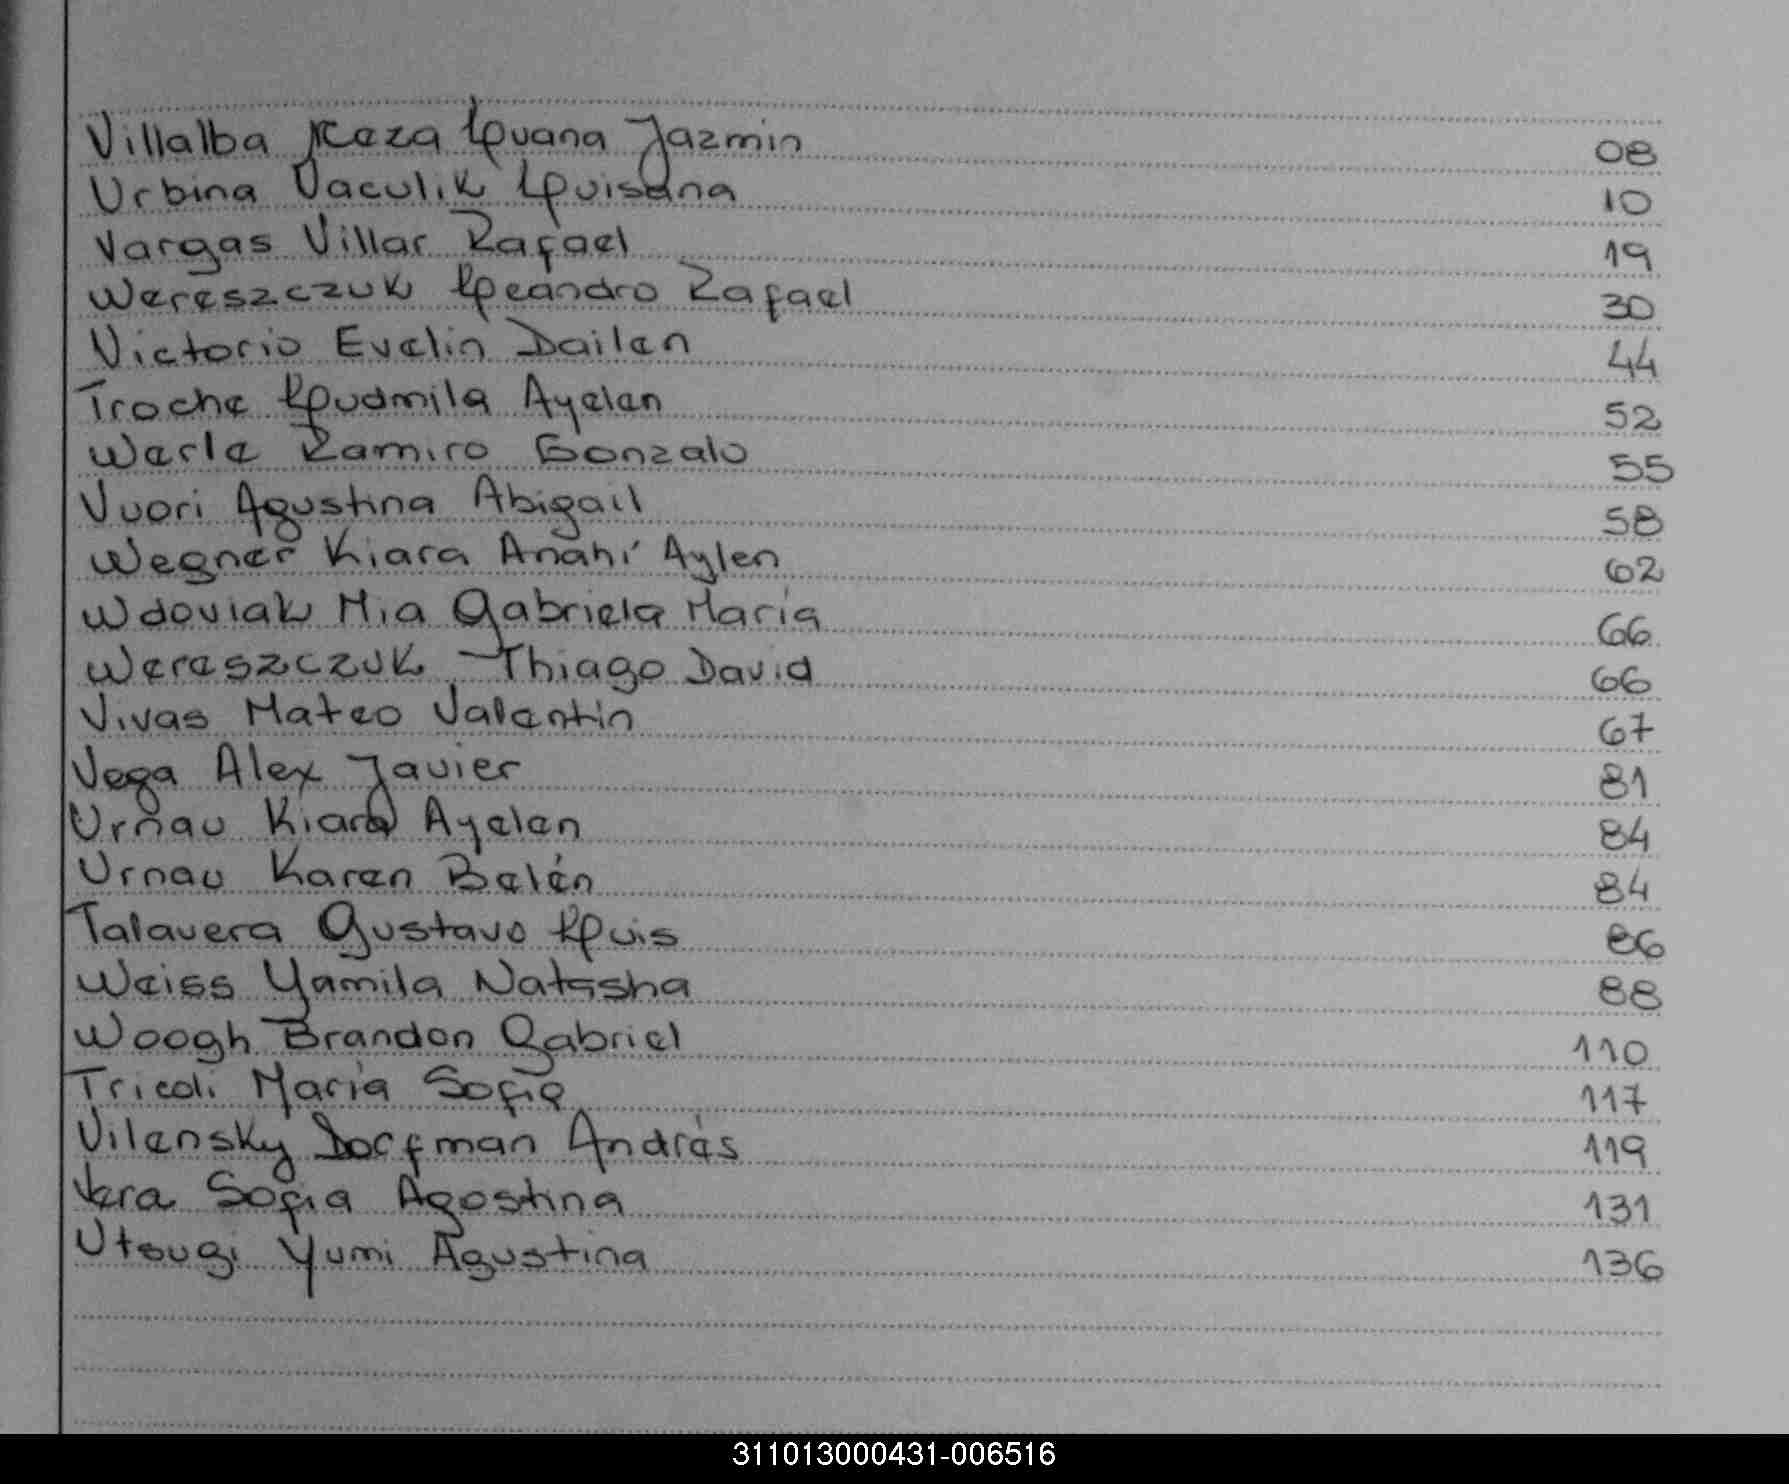 Villalba Meza Luana Jazmin 08
Urbina Vaculik Luisana 10
Vargas Villar Rafael 19
Wereszczuk Leandro Rafael 30
Victorio Evelin Dailen 44
Troche Ludmila Ayelen 52
Werle Ramiro Gonzalo 55
Vuori Agustina Abigail 58
Wegner Kiara Anahí Aylen 62
Wdoviak Mia Gabriela María 66
Wereszczuk Thiago David 66
Vivas Mateo Valentin 67
Vega Alex Javier 81
Urnau Kiara Ayelen 84
Urnau Karen Belén 84
Talavera Gustavo Luis 86
Weiss Yamila Natasha 88
Woogh Brandon Gabriel 110
Tricoli María Sofia 117
Vilensky Dorfman Andrés 119
Vera Sofia Agostina 131
Utsugi Yumi Agustina 136
311013000431-006516